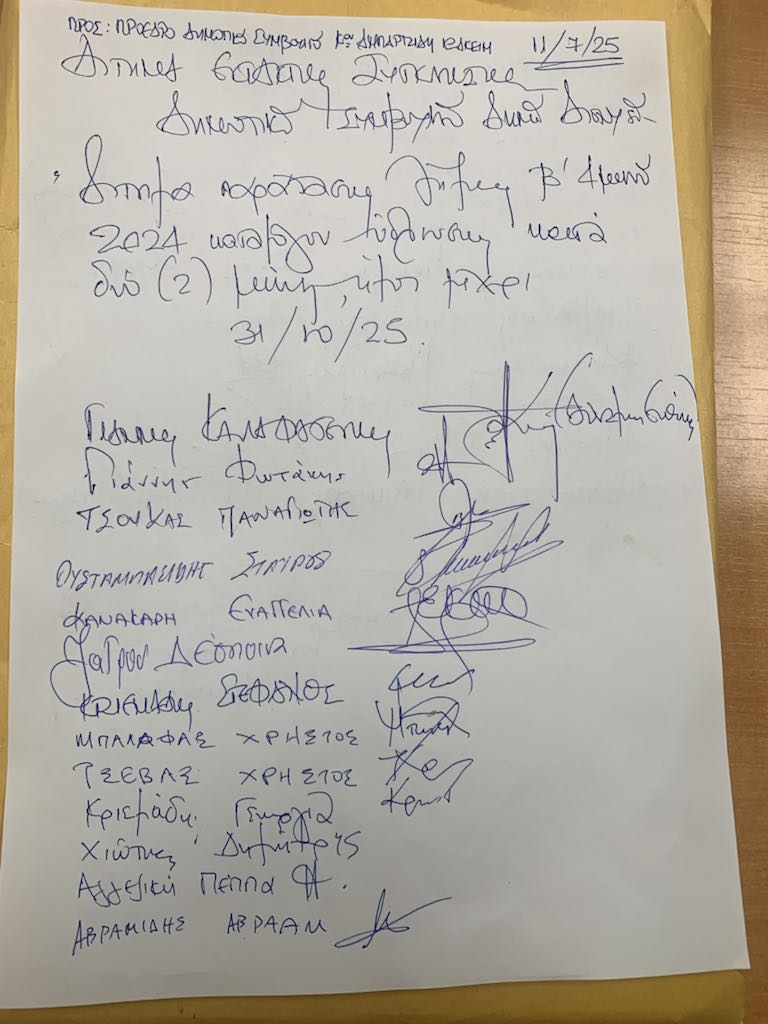 ΠΡΟΣ: ΠΡΟΕΔΡΟ ΔΗΜΟΤΙΚΟΥ ΣΥΜΒΟΥΛΙΟΥ Κον ΔΗΜΑΡΤΖΙΔΗ ΙΩΑΚΕΙΜ 11/7/25
Αίτημα έκτακτης Σύγκλησης
Δημοτικού Συμβουλίου Δήμου Διονύσου
Αίτημα παράτασης λήξης Β' 4μηνου
2024 καταλόγου ύδρευσης κατά
δύο (2) μήνες, ήτοι μέχρι
31/10/25.
Γιάννης ΚΑΛΑΦΑΤΕΛΗΣ
Γιάννης Φωτάκης
ΤΣΟΥΚΑΣ ΠΑΝΑΓΙΩΤΗΣ
ΟΥΣΤΑΜΠΑΣΙΔΗΣ ΣΤΑΥΡΟΣ
ΚΑΝΑΚΑΡΗ ΕΥΑΓΓΕΛΙΑ
Ιατρού Δέσποινα
ΚΡΙΕΜΑΔΗΣ ΣΤΕΦΑΝΟΣ
ΜΠΑΛΑΦΑΣ ΧΡΗΣΤΟΣ
ΤΣΕΒΑΣ ΧΡΗΣΤΟΣ
Κριεμάδη Γεωργία
Χιώτης Δημήτρης
Αγγελική Πέππα
ΑΒΡΑΜΙΔΗΣ ΑΒΡΑΑΜ